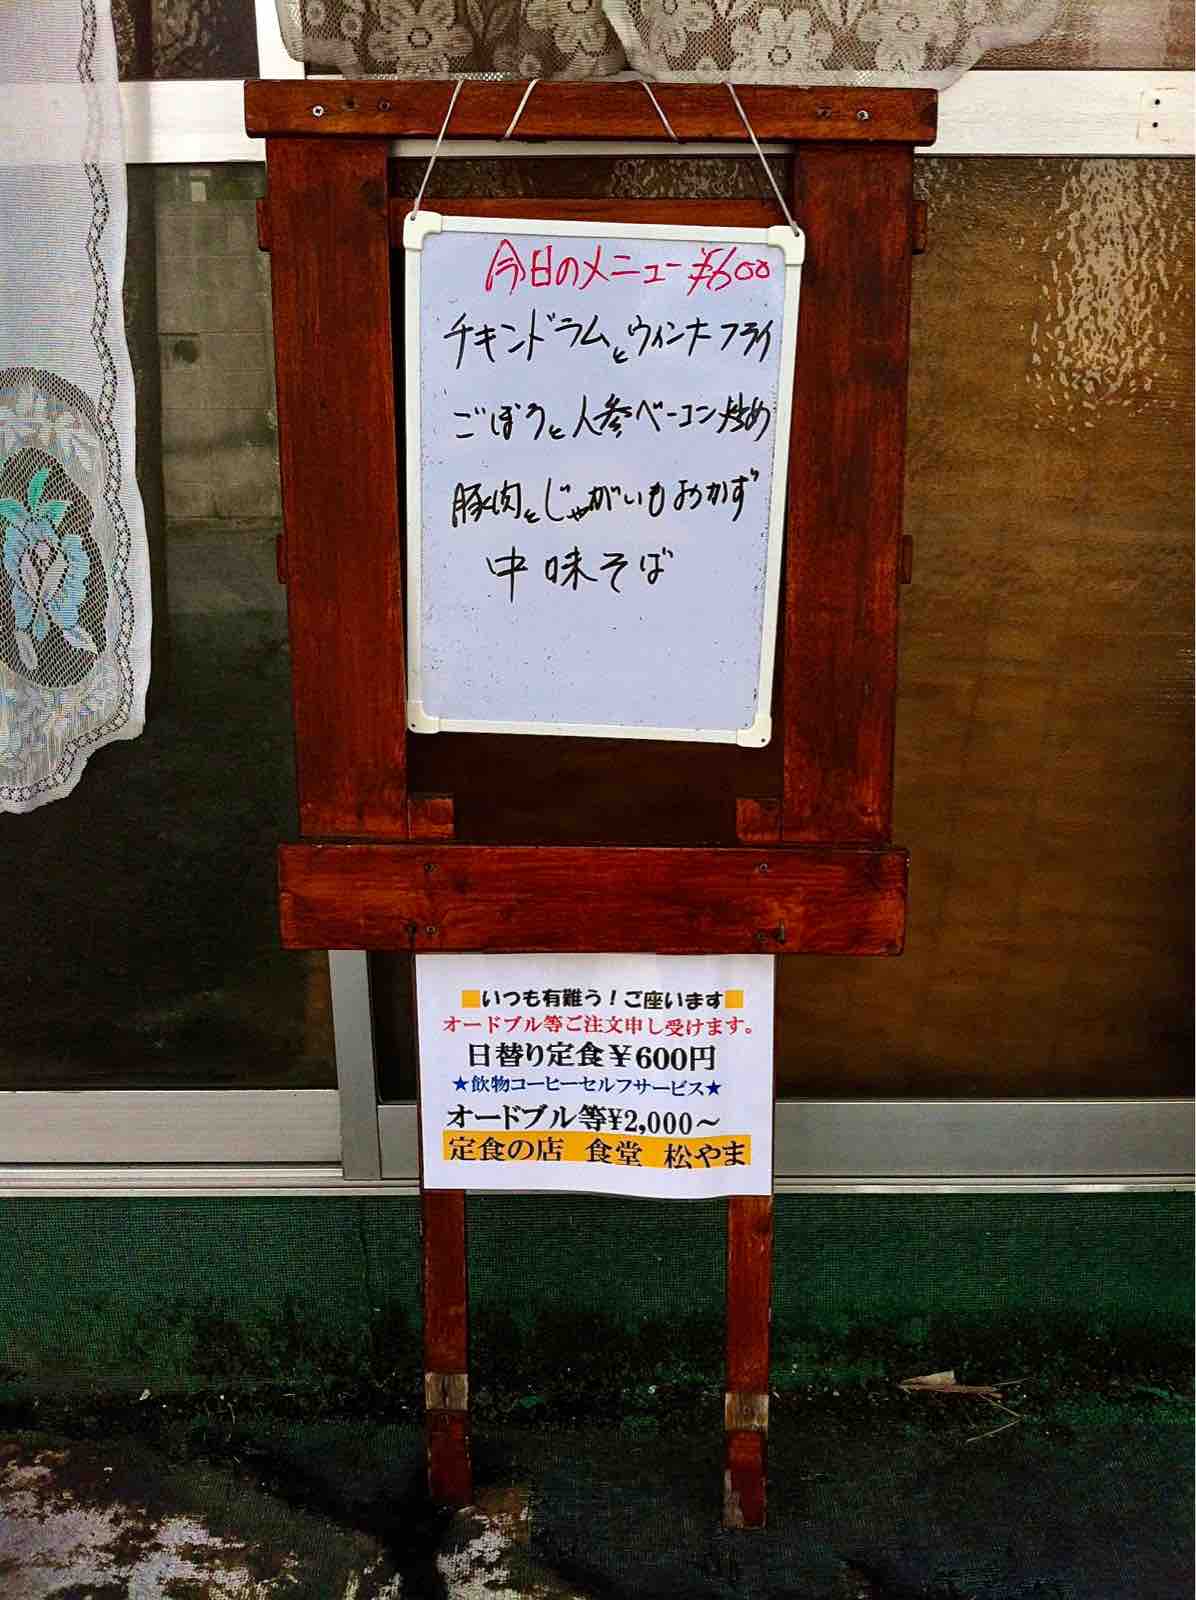 今日のメニュー ¥600
チキンドラムとウィンナーフライ
ごぼうと人参ベーコン炒め
豚肉とじゃがいもおかず
中味そば
■いつも有難う！ご座います■
オードブル等ご注文申し受けます。
日替り定食￥600円
★飲物コーヒーセルフサービス★
オードブル等¥2,000～
定食の店 食堂 松やま